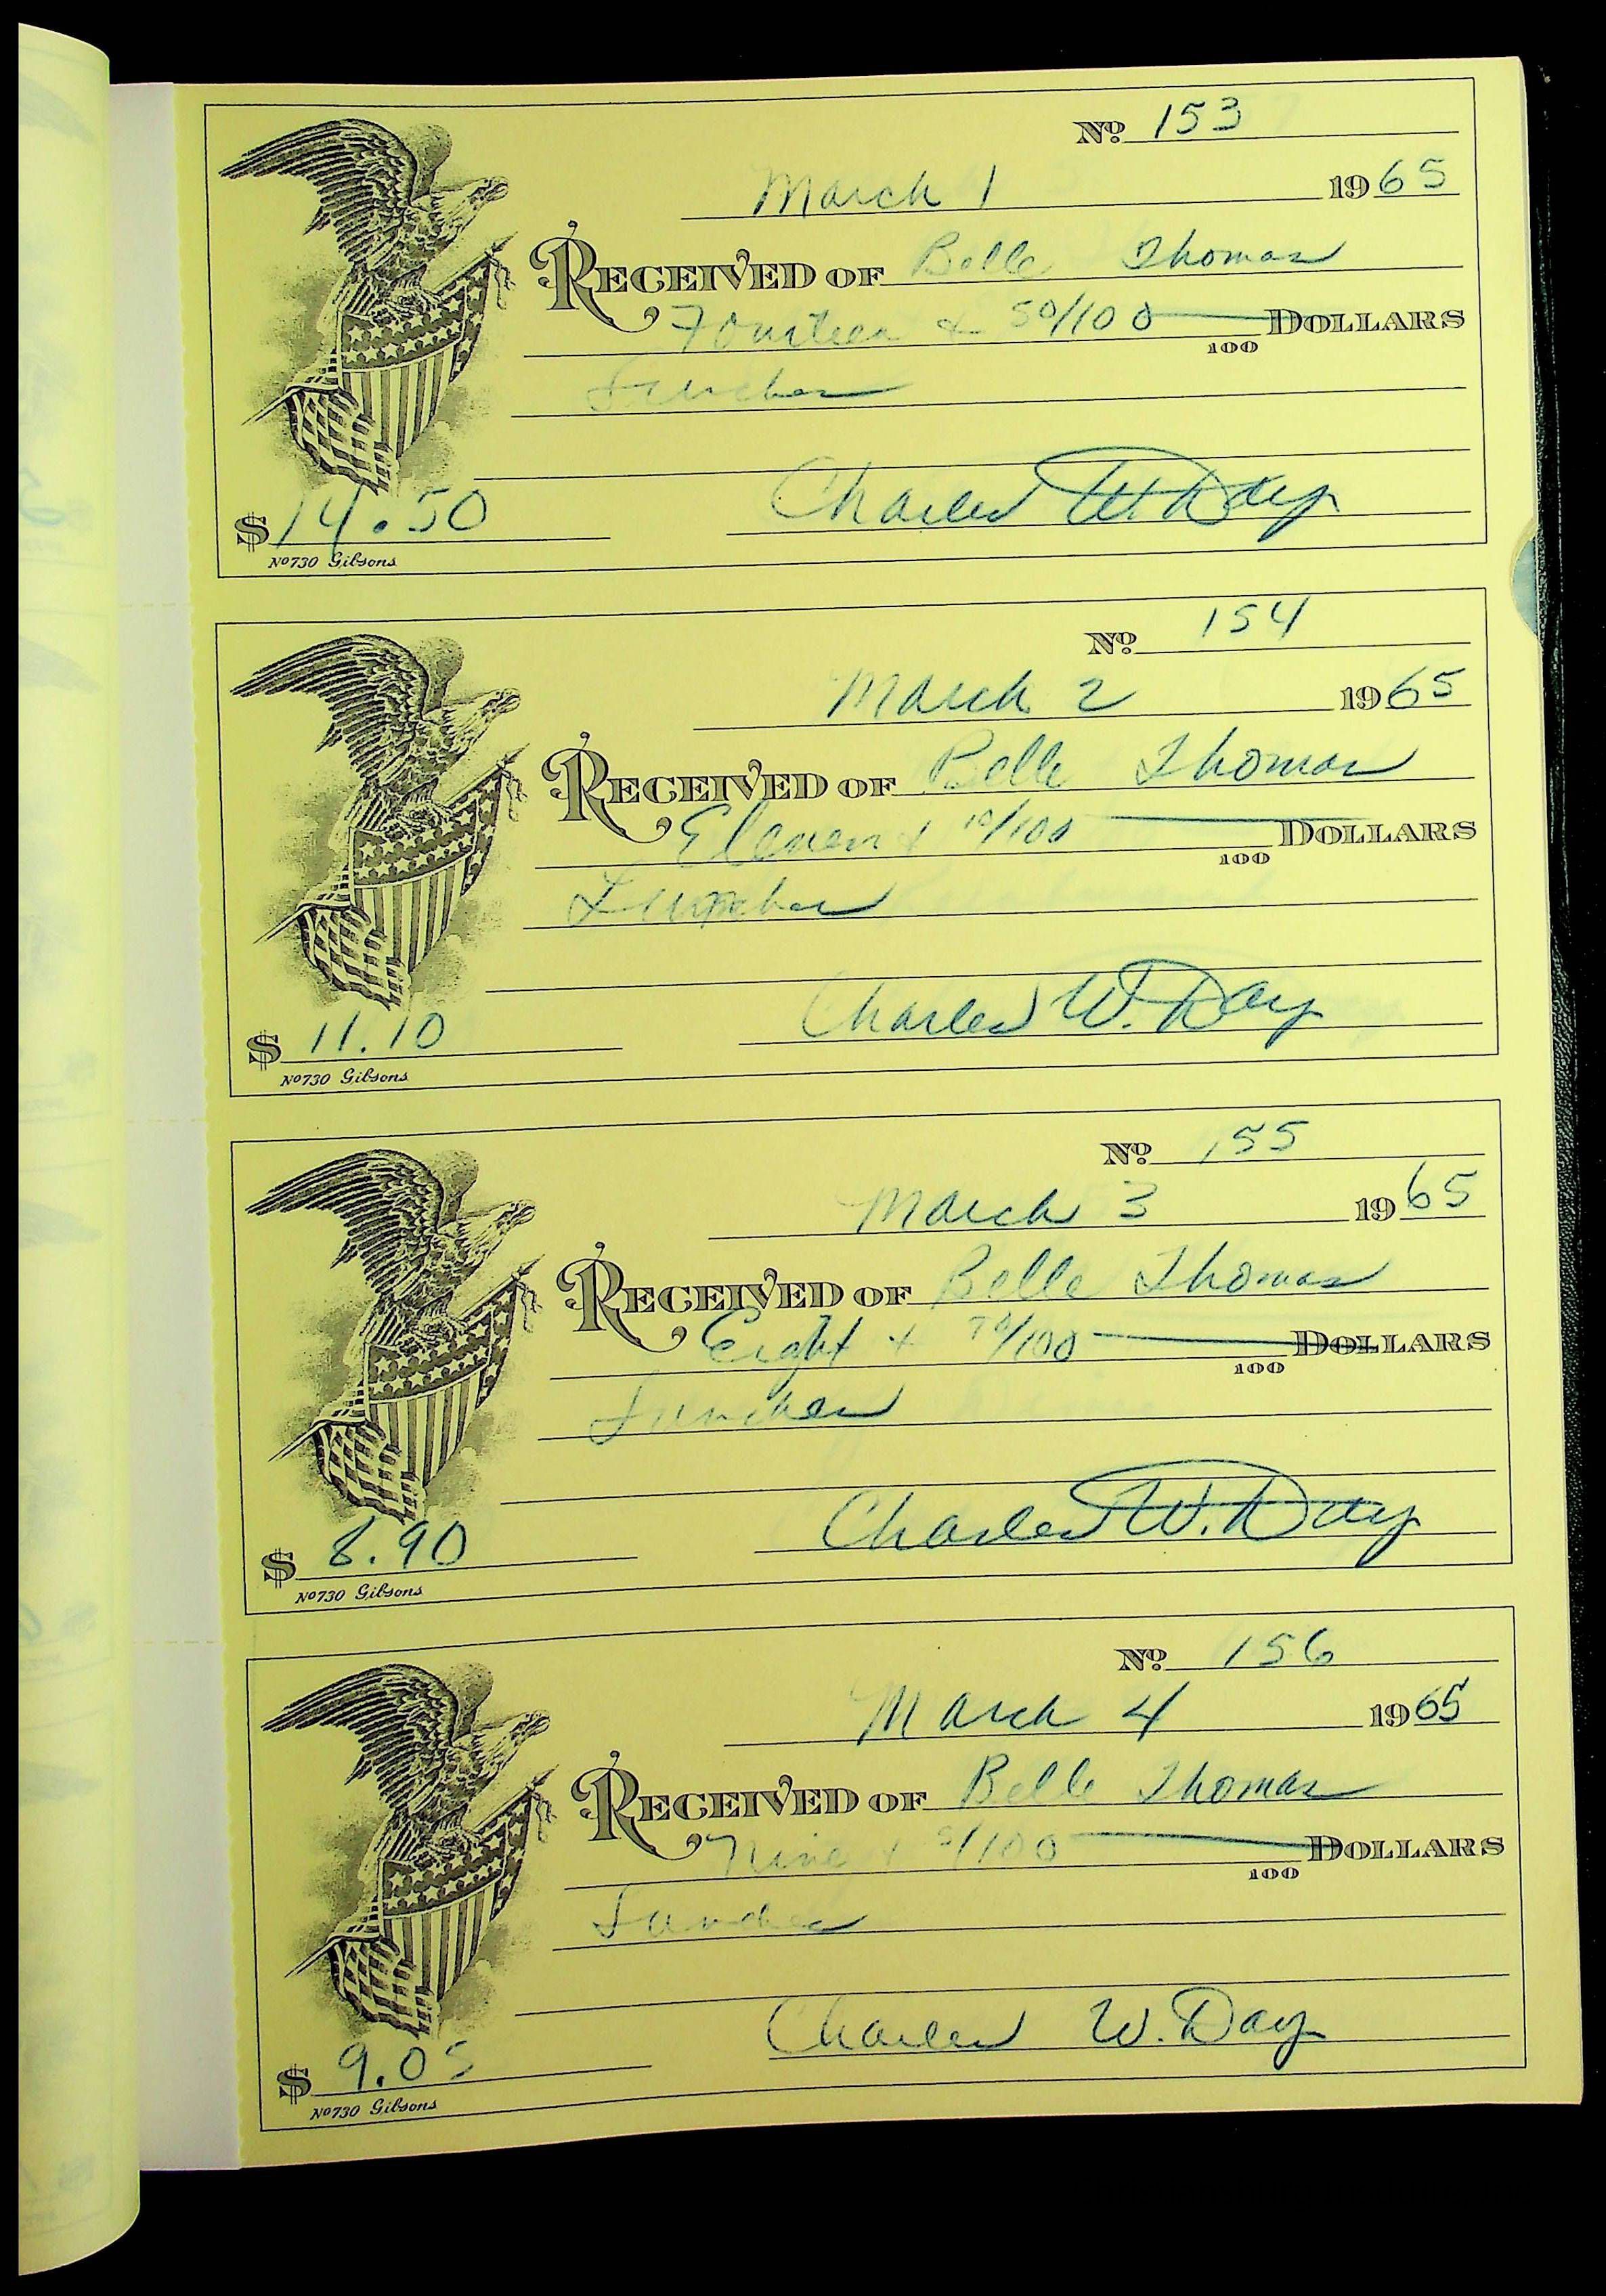 No. 153
March 1 1965
RECEIVED OF Belle Thomas
Fourteen & 50/100 DOLLARS
100
Lunches
Charles W. Day
$ 14.50
No 730 Gibsons
No. 154
March 2 1965
RECEIVED OF Belle Thomas
Eleven & 10/100 DOLLARS
100
Lunches
Charles W. Day
$ 11.10
No 730 Gibsons
No. 155
March 3 1965
RECEIVED OF Belle Thomas
Eight & /100 DOLLARS
100
Lunches
Charles W. Day
$ 8.90
No 730 Gibsons
No. 156
March 4 1965
RECEIVED OF Belle Thomas
Nine & 5/100 DOLLARS
100
Lunches
Charles W. Day
$ 9.05
No 730 Gibsons